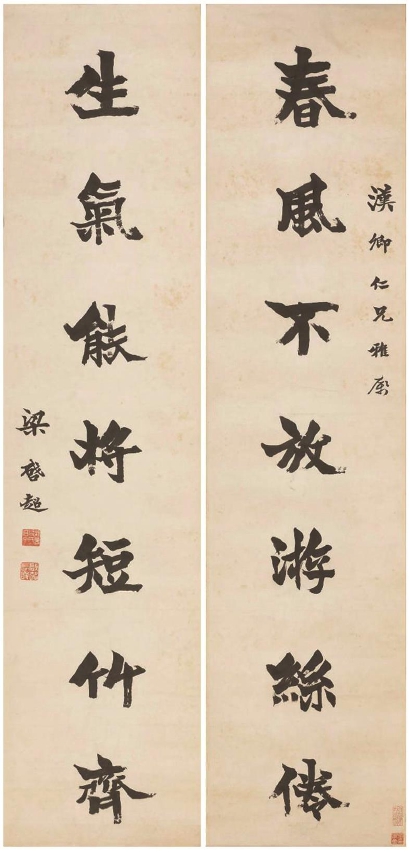 漢卿仁兄雅屬
春風不放游絲倦
生氣能將短竹齊
梁啟超